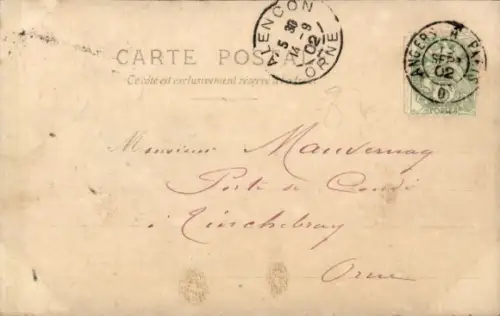 ALENCON
5 30
14 - 9
02
ORNE
ANGERS A PARIS
SEPT
02
CARTE POSTALE
Ce côté est exclusivement réservé à l'adresse
Monsieur Mauvernay
Porte de Condé
à Tinchebray
Orne